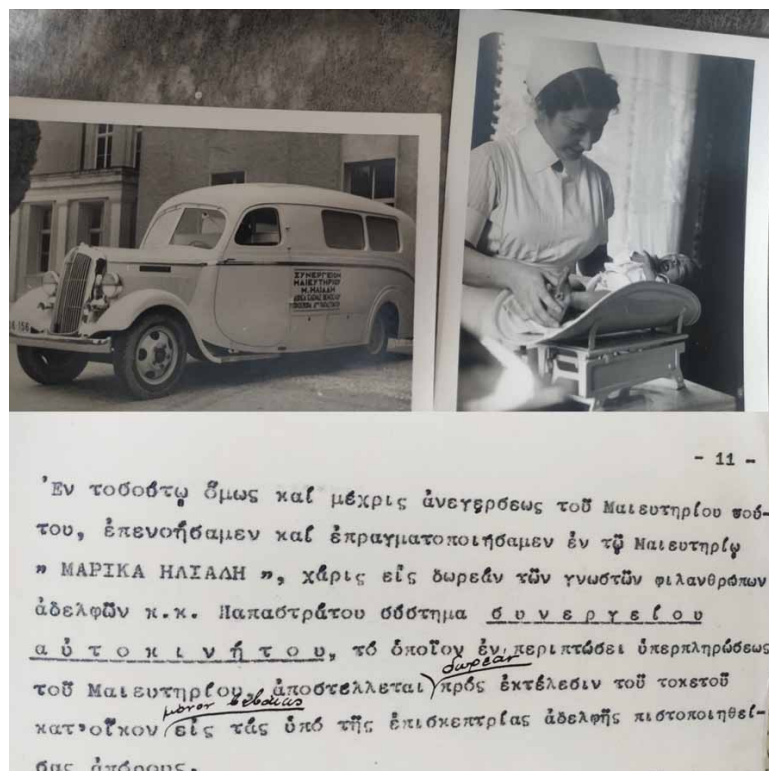 ΣΥΝΕΡΓΕΙΟΝ
ΜΑΙΕΥΤΗΡΙΟΥ
Μ. ΗΛΙΑΔΗ
- 11 -
Ἐν τοσούτῳ ὅμως καί μέχρις ἀνεγέρσεως τοῦ Μαιευτηρίου τού-
του, ἐπενοήσαμεν καί ἐπραγματοποιήσαμεν ἐν τῷ Μαιευτηρίῳ
" ΜΑΡΙΚΑ ΗΛΙΑΔΗ ", χάρις εἰς δωρεάν τῶν γνωστῶν φιλανθρώπων
ἀδελφῶν κ.κ. Παπαστράτου σύστημα συνεργείου
αὐτοκινήτου, τό ὁποῖον ἐν περιπτώσει ὑπερπληρώσεως
δωρεάν
τοῦ Μαιευτηρίου, ἀποστέλλεται πρός ἐκτέλεσιν τοῦ τοκετοῦ
μόνον βεβαίως
κατ'οἶκον εἰς τάς ὑπό τῆς ἐπισκεπτρίας ἀδελφῆς πιστοποιηθεί-
σας ἀπόρους.